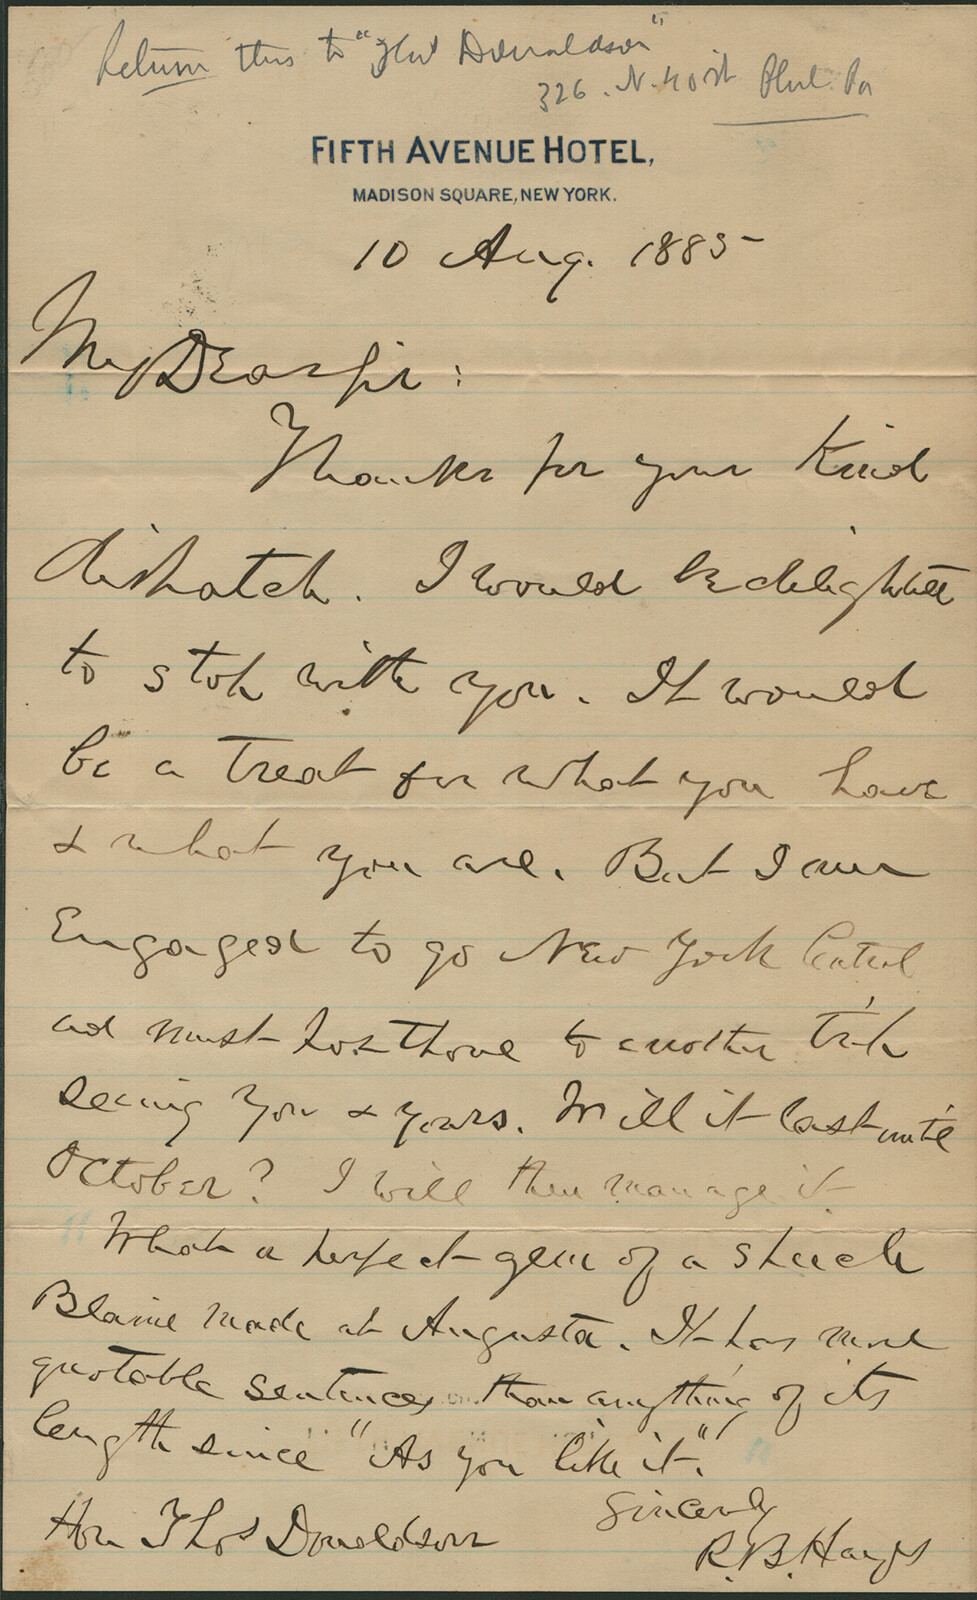 Return this to "Thos Donaldson"
326. N. 40 st Phil. Pa
FIFTH AVENUE HOTEL,
MADISON SQUARE, NEW YORK.
10 Aug. 1885
My Dear Sir:
Thanks for your kind
dispatch. I would be delighted
to stop with you. It would
be a treat for what you have
& what you are. But I am
Engaged to go New York Central
and must postpone to another trip
seeing you & yours. Will it last until
October? I will then manage it.
What a perfect gem of a speech
Blaine made at Augusta. It has more
quotable sentences than anything of its
length since "As you like it."
Sincerely
Hon Thos Donaldson
R. B. Hayes